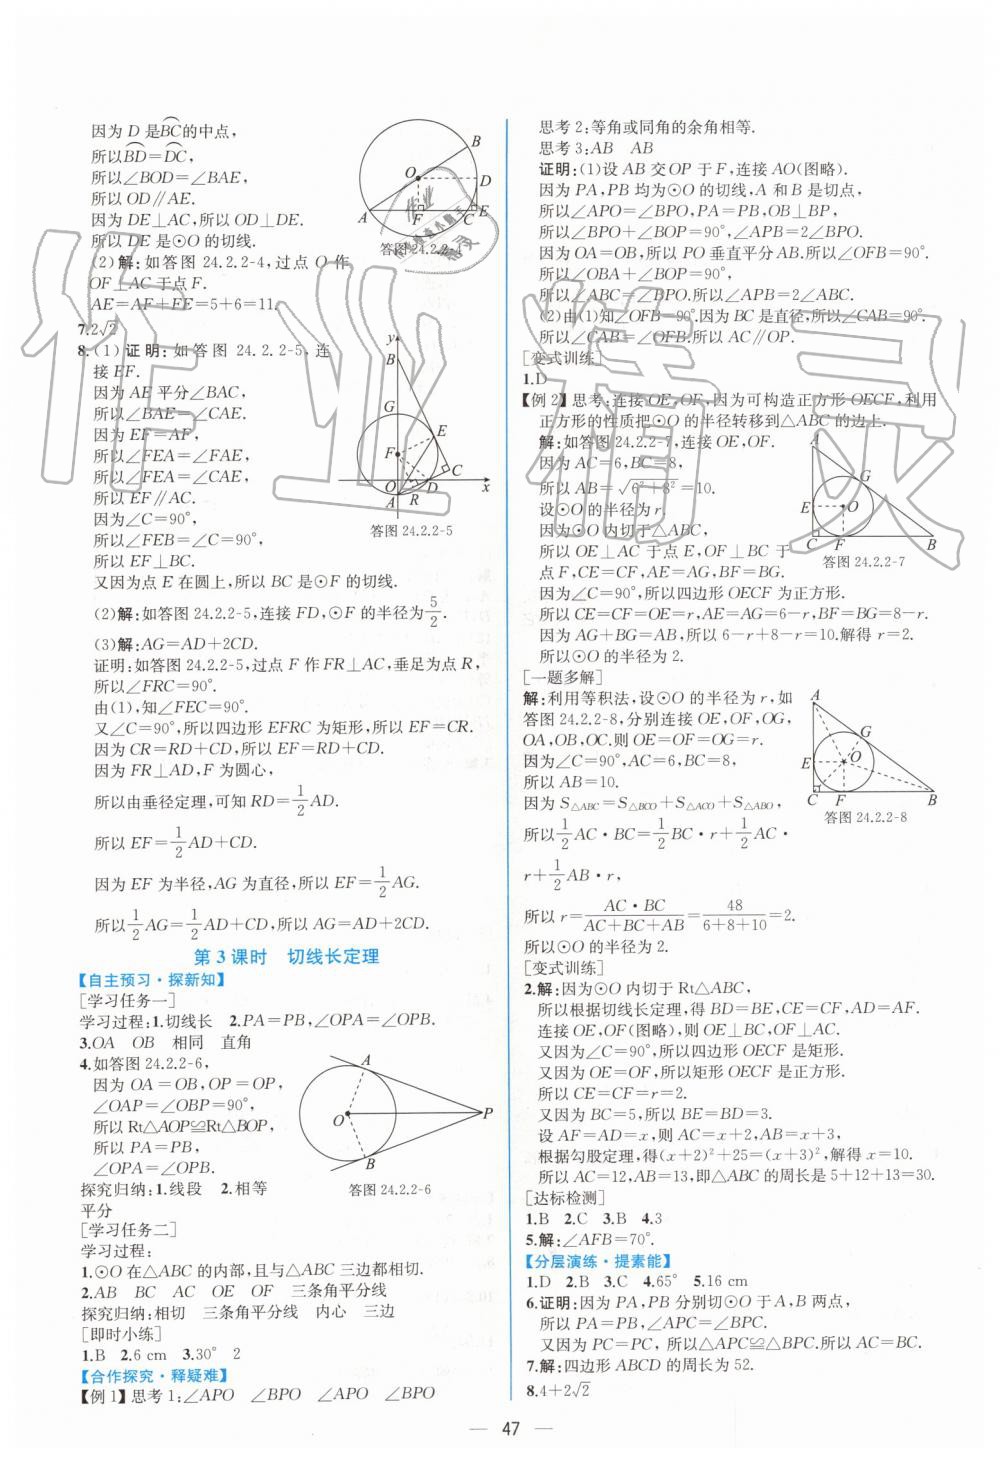 因为 D 是BC的中点,
所以BD=DC,
所以∠BOD=∠BAE,
所以 OD∥AE.
因为 DE⊥AC,所以 OD⊥DE.
所以 DE 是⊙O 的切线.
(2)解:如答图 24.2.2-4,过点 O 作
OF⊥AC 于点 F.
AE=AF+FE=5+6=11.
B
O
D
A
F
C
E
答图 24.2.2-4
7.2√2
8.(1)证明:如答图 24.2.2-5,连
接 EF.
因为 AE 平分∠BAC,
所以∠BAE=∠CAE.
因为 EF=AF,
所以∠FEA=∠FAE,
所以∠FEA=∠CAE,
所以 EF∥AC.
因为∠C=90°,
所以∠FEB=∠C=90°,
所以 EF⊥BC.
又因为点 E 在圆上,所以 BC 是⊙F 的切线.
y
B
G
E
F
C
O
D
A
R
x
答图 24.2.2-5
(2)解:如答图 24.2.2-5,连接 FD,⊙F 的半径为5/2.
(3)解:AG=AD+2CD.
证明:如答图 24.2.2-5,过点 F 作 FR⊥AC,垂足为点 R,
所以∠FRC=90°.
由(1),知∠FEC=90°.
又∠C=90°,所以四边形 EFRC 为矩形,所以 EF=CR.
因为 CR=RD+CD,所以 EF=RD+CD.
因为 FR⊥AD,F 为圆心,
所以由垂径定理,可知 RD=1/2AD.
所以 EF=1/2AD+CD.
因为 EF 为半径,AG 为直径,所以 EF=1/2AG.
所以1/2AG=1/2AD+CD,所以 AG=AD+2CD.
第 3 课时 切线长定理
【自主预习·探新知】
[学习任务一]
学习过程:1.切线长 2.PA=PB,∠OPA=∠OPB.
3.OA OB 相同 直角
4.如答图 24.2.2-6,
因为 OA=OB,OP=OP,
∠OAP=∠OBP=90°,
所以 Rt△AOP≌Rt△BOP,
所以 PA=PB,
∠OPA=∠OPB.
A
O
P
B
答图 24.2.2-6
探究归纳:1.线段 2.相等
平分
[学习任务二]
学习过程:
1.⊙O 在△ABC 的内部,且与△ABC 三边都相切.
2.AB BC AC OE OF 三条角平分线
探究归纳:相切 三条角平分线 内心 三边
[即时小练]
1.B 2.6 cm 3.30° 2
【合作探究·释疑难】
【例 1】思考 1:∠APO ∠BPO ∠APO ∠BPO
思考 2:等角或同角的余角相等.
思考 3:AB AB
证明:(1)设 AB 交 OP 于 F,连接 AO(图略).
因为 PA,PB 均为⊙O 的切线,A 和 B 是切点,
所以∠APO=∠BPO,PA=PB,OB⊥BP,
所以∠BPO+∠BOP=90°,∠APB=2∠BPO.
因为 OA=OB,所以 PO 垂直平分 AB.所以∠OFB=90°.
所以∠OBA+∠BOP=90°,
所以∠ABC=∠BPO.所以∠APB=2∠ABC.
(2)由(1)知∠OFB=90°.因为 BC 是直径,所以∠CAB=90°.
所以∠CAB=∠OFB.所以 AC∥OP.
[变式训练]
1.D
【例 2】思考:连接 OE,OF,因为可构造正方形 OECF,利用
正方形的性质把⊙O 的半径转移到△ABC 的边上.
解:如答图 24.2.2-7,连接 OE,OF.
因为 AC=6,BC=8,
所以 AB=√6²+8²=10.
设⊙O 的半径为 r.
因为⊙O 内切于△ABC,
所以 OE⊥AC 于点 E,OF⊥BC 于
点 F,CE=CF,AE=AG,BF=BG.
因为∠C=90°,所以四边形 OECF 为正方形.
所以 CE=CF=OE=r,AE=AG=6-r,BF=BG=8-r.
因为 AG+BG=AB,所以 6-r+8-r=10.解得 r=2.
所以⊙O 的半径为 2.
A
G
E
O
C
F
B
答图 24.2.2-7
[一题多解]
解:利用等积法,设⊙O 的半径为 r,如
答图 24.2.2-8,分别连接 OE,OF,OG,
OA,OB,OC.则 OE=OF=OG=r.
因为∠C=90°,AC=6,BC=8,
所以 AB=10.
因为 S△ABC=S△BCO+S△ACO+S△ABO,
所以1/2AC·BC=1/2BC·r+1/2AC·
r+1/2AB·r,
所以 r=AC·BC/(AC+BC+AB)=48/(6+8+10)=2.
所以⊙O 的半径为 2.
A
G
E
O
C
F
B
答图 24.2.2-8
[变式训练]
2.解:因为⊙O 内切于 Rt△ABC,
所以根据切线长定理,得 BD=BE,CE=CF,AD=AF.
连接 OE,OF(图略),则 OE⊥BC,OF⊥AC.
又因为∠C=90°,所以四边形 OECF 是矩形.
又因为 OE=OF,所以矩形 OECF 是正方形.
所以 CE=CF=r=2.
又因为 BC=5,所以 BE=BD=3.
设 AF=AD=x,则 AC=x+2,AB=x+3,
根据勾股定理,得(x+2)²+25=(x+3)²,解得 x=10.
所以 AC=12,AB=13,即△ABC 的周长是 5+12+13=30.
[达标检测]
1.B 2.C 3.B 4.3
5.解:∠AFB=70°.
【分层演练·提素能】
1.D 2.B 3.C 4.65° 5.16 cm
6.证明:因为 PA,PB 分别切⊙O 于 A,B 两点,
所以 PA=PB,∠APC=∠BPC.
又因为 PC=PC, 所以△APC≌△BPC.所以 AC=BC.
7.解:四边形 ABCD 的周长为 52.
8.4+2√2
— 47 —
作业精灵